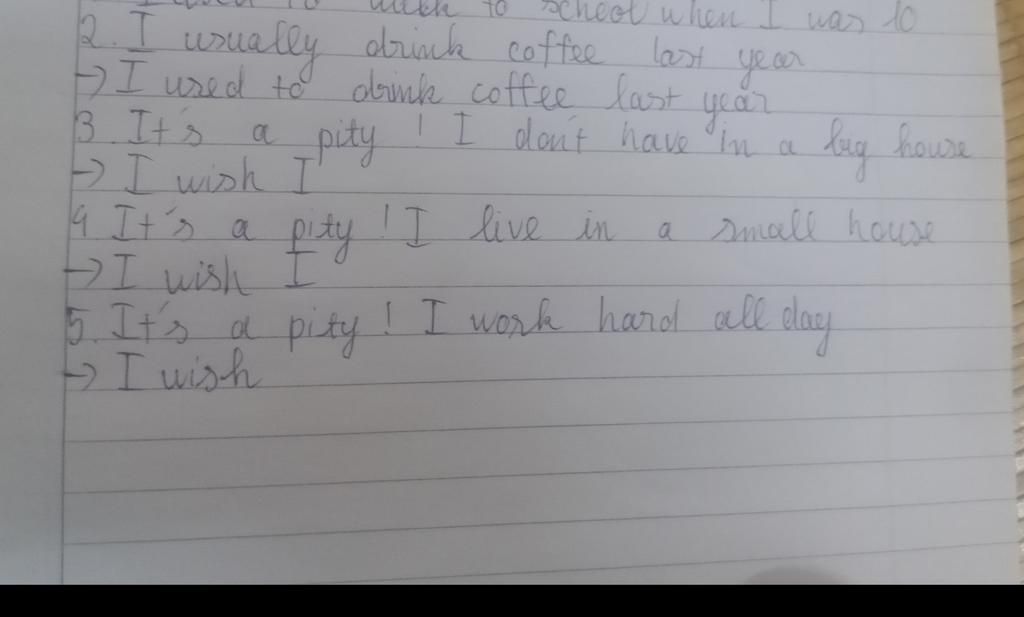 I used to walk to school when I was 10
2. I usually drink coffee last year
→ I used to drink coffee last year
3. It's a pity ! I don't have in a big house
→ I wish I
4 It's a pity ! I live in a small house
→ I wish I
5. It's a pity ! I work hard all day
→ I wish